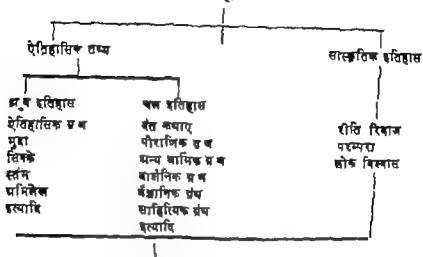 ऐतिहासिक तथ्य
सांस्कृतिक इतिहास
ध्रुव इतिहास
ऐतिहासिक ग्रंथ
मुद्रा
सिक्के
स्तंभ
अभिलेख
इत्यादि
चल इतिहास
दंत कथाएं
पौराणिक ग्रंथ
अन्य धार्मिक ग्रंथ
दार्शनिक ग्रंथ
वैज्ञानिक ग्रंथ
साहित्यिक ग्रंथ
इत्यादि
रीति रिवाज
परम्परा
लोक विश्वास